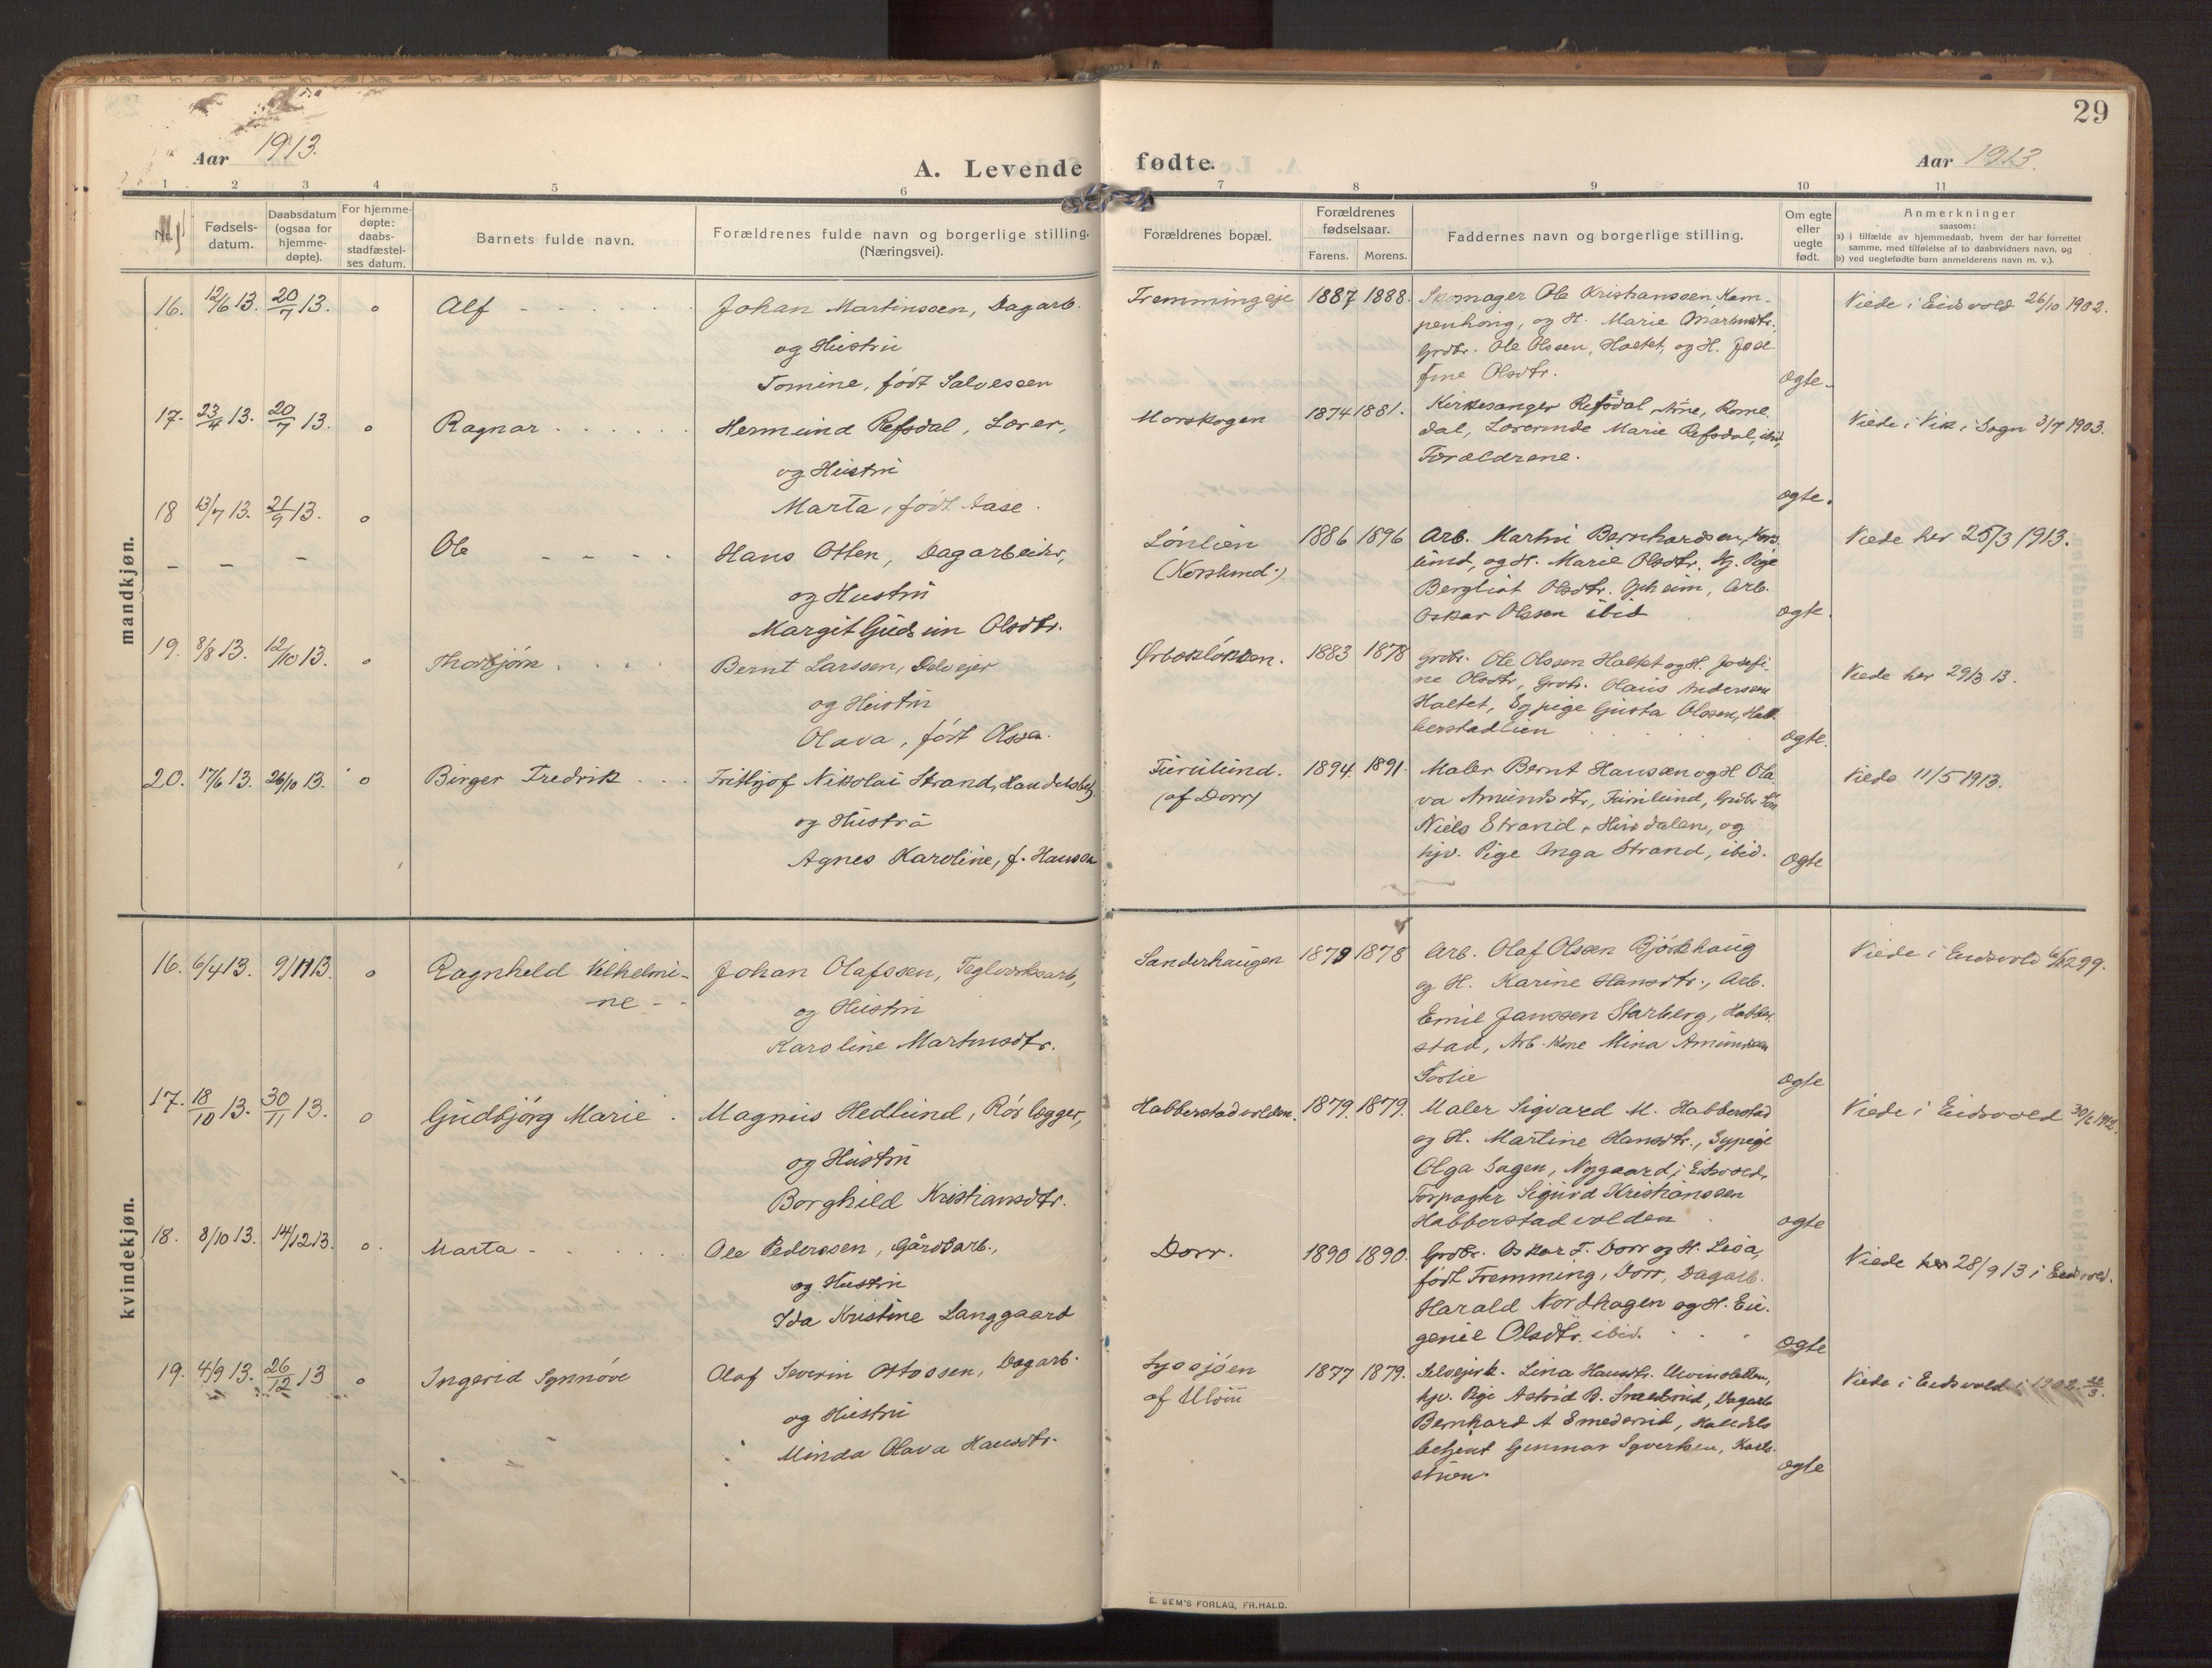 29
Aar 1913.
A. Levende fødte.
Aar 1913.
1 2 3 4 5 6 7 8 9 10 11
Nr. Fødsels-datum. Daabsdatum (ogsaa for hjemme-døpte). For hjemme-døpte: daabs-stadfæstel-ses datum. Barnets fulde navn. Forældrenes fulde navn og borgerlige stilling. (Næringsvei). Forældrenes bopæl. Forældrenes fødselsaar. Farens. Morens. Faddernes navn og borgerlige stilling. Om egte eller uegte født. Anmerkninger saasom: a) i tilfælde av hjemmedaab, hvem der har forrettet samme, med tilføielse af to daabsvidners navn, og b) ved uegtefødte barn anmelderens navn m. v.).
mandkjøn.
16. 12/6 13. 20/7 13. o Alf Johan Martinssen, Dagarb. Fremmingeje 1887 1888. Skomager Ole Kristianssen, Kam- Viede i Eidsvold 26/10 1902.
penhoug, og H. Marie
og Hustru Grdbr. Ole Olssen, Holtet, og H. Jose
Tomine, født Salvessen fine Olsdtr. Ogte.
17. 23/4 13. 20/7 13. o Ragnar Hermund Refsdal, Lærer, Morskogen 1874 1881. Kirkesanger Refsdal, Rome- Viede i Vik i Sogn 3/7 1903.
dal, Lærerinde Marie Refsdal, ibid,
og Hustru Forældrene.
18 13/7 13. 21/9 13. o Marta, født Aase. ogte.
Ole Hans Otten, Dagarbeider, Lønlien 1886 1896 Arb. Martin Bernhardsen, Kors- Viede her 25/3 1913.
(Korslund.) lund, og H. Marie Olsdtr. Pige
og Hustru Bergliot Olsdtr. Arb.
Margit Gudrun Olsdtr. Oskar Olssen ibid ogte.
19. 8/8 13. 12/10 13. o Thorbjørn Bernt Larssen, Selvejer Ørbækløkken. 1883 1878 Grdbr. Ole Olssen Holtet og H. Josefi- Viede her 29/3 13.
ne Olsdtr, Grdbr. Olaus Anderssen
og Hustru Holtet, Sypige Gusta Olssen, Hab-
Olava, født Olssen. berstadlien ogte.
20. 17/6 13. 26/10 13. o Birger Fredrik Frithjof Nikolai Strand, Handelsbetj. Furulund. 1894. 1891. Maler Bernt Hanssen og H. Ola- Viede 11/5 1913.
(af Dorr) va Amundsdtr, Furulund, Grdbr.
og Hustru Niels Strand, Hirsdalen, og
Agnes Karoline, f. Hansen hjv. Pige Inga Strand, ibid. ogte
kvindekjøn.
16. 6/4 13. 9/11 13. o Ragnhild Vilhelmi- Johan Olafssen, Teglverksarb, Sanderhaugen 1879 1878 Arb. Olaf Olsen Bjørkhaug Viede i Eidsvold 99.
ne og Hustru og H. Karine Hansdtr., Arb.
Karoline Martinsdtr. Emil Janssen Starberg, Habber-
stad, Arb. Kone Mina Amundsen
ogte
17. 18/10 13. 30/11 13. o Gudbjørg Marie. Magnus Hedlund, Rørlægger, Habberstadvolden. 1879. 1879. Maler Sigvard M. Habberstad Viede i Eidsvold
og H. Martine Hansdtr., Sypige
og Hustru Olga Sagen, Nygaard i Eidsvold,
Borghild Kristiansdtr. Forpagter Sigurd Kristianssen
Habberstadvolden ogte
18. 8/10 13. 14/12 13. o. Marta Ole Pederssen, Gårdsarb., Dorr. 1890 1890. Grdbr. Oskar F. Dorr og H. Lisa, Viede her 28/9 13 i Eidsvold.
og Hustru født Fremming, Dorr, Dagarb.
Ida Kristine Langgaard Harald Nordhagen og H. Eu-
genie Olsdtr. ibid. ogte
19. 4/9 13. 26/12 13 o Ingerid Synnøve Olaf Severin Ottossen, Dagarb. Sysjøen 1877 1879. Selvejersk. Lina Hansdtr. Viede i Eidsvold i 1902. 22/3.
af Ulvin hjv. Pige Astrid B. Dagarb
og Hustru Bernhard A Smedsrud, Handels
Minda Olava Hansdtr. betjent Gunnar Syversen, Karls-
struen. ogte
E. SEM'S FORLAG, FR.HALD.